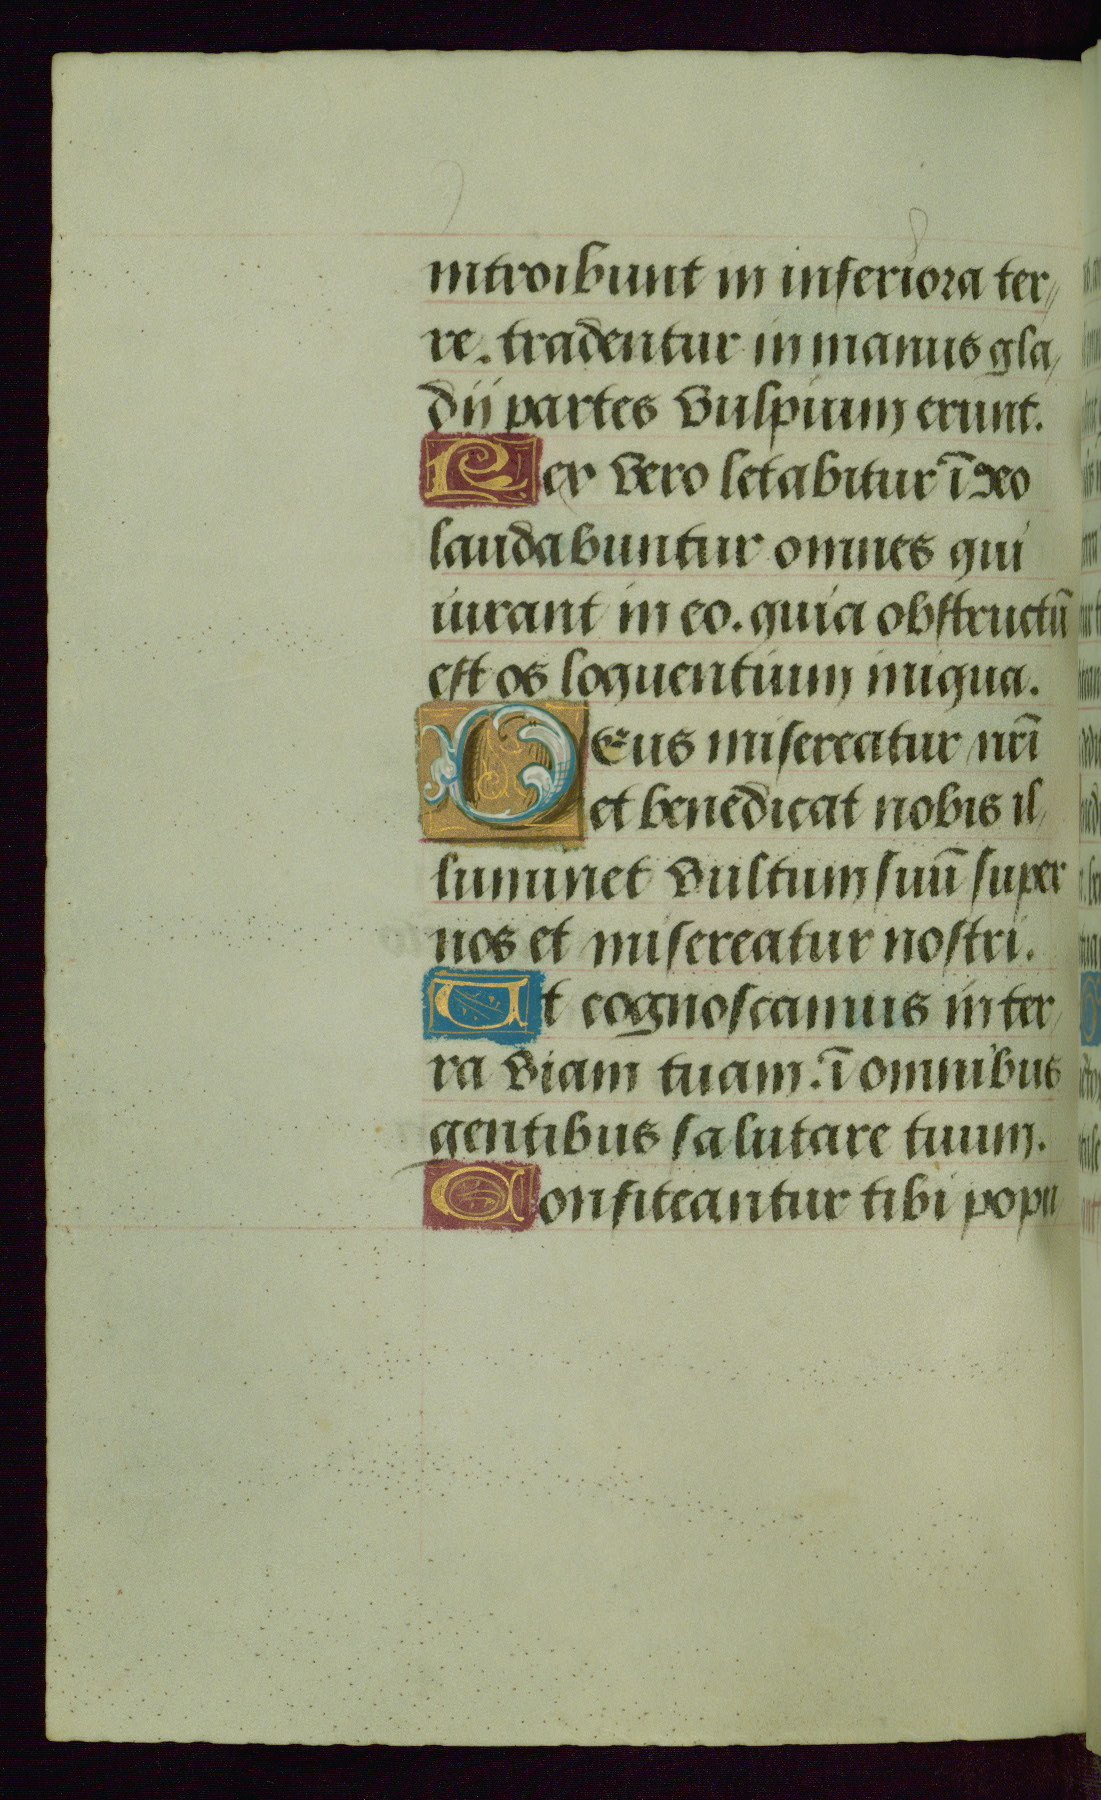 introibunt in inferiora ter,,
re. tradentur in manus gla,
dij partes vulpium erunt.
Rex vero letabitur ī deo
laudabuntur omnes qui
iurant in eo. quia obstructū
est os loquentium iniqua.
Deus misereatur nr̄i
et benedicat nobis il,
luminet vultum suū super
nos et misereatur nostri.
Ut cognoscamus in ter,
ra viam tuam. ī omnibus
gentibus salutare tuum.
Confiteantur tibi popu,